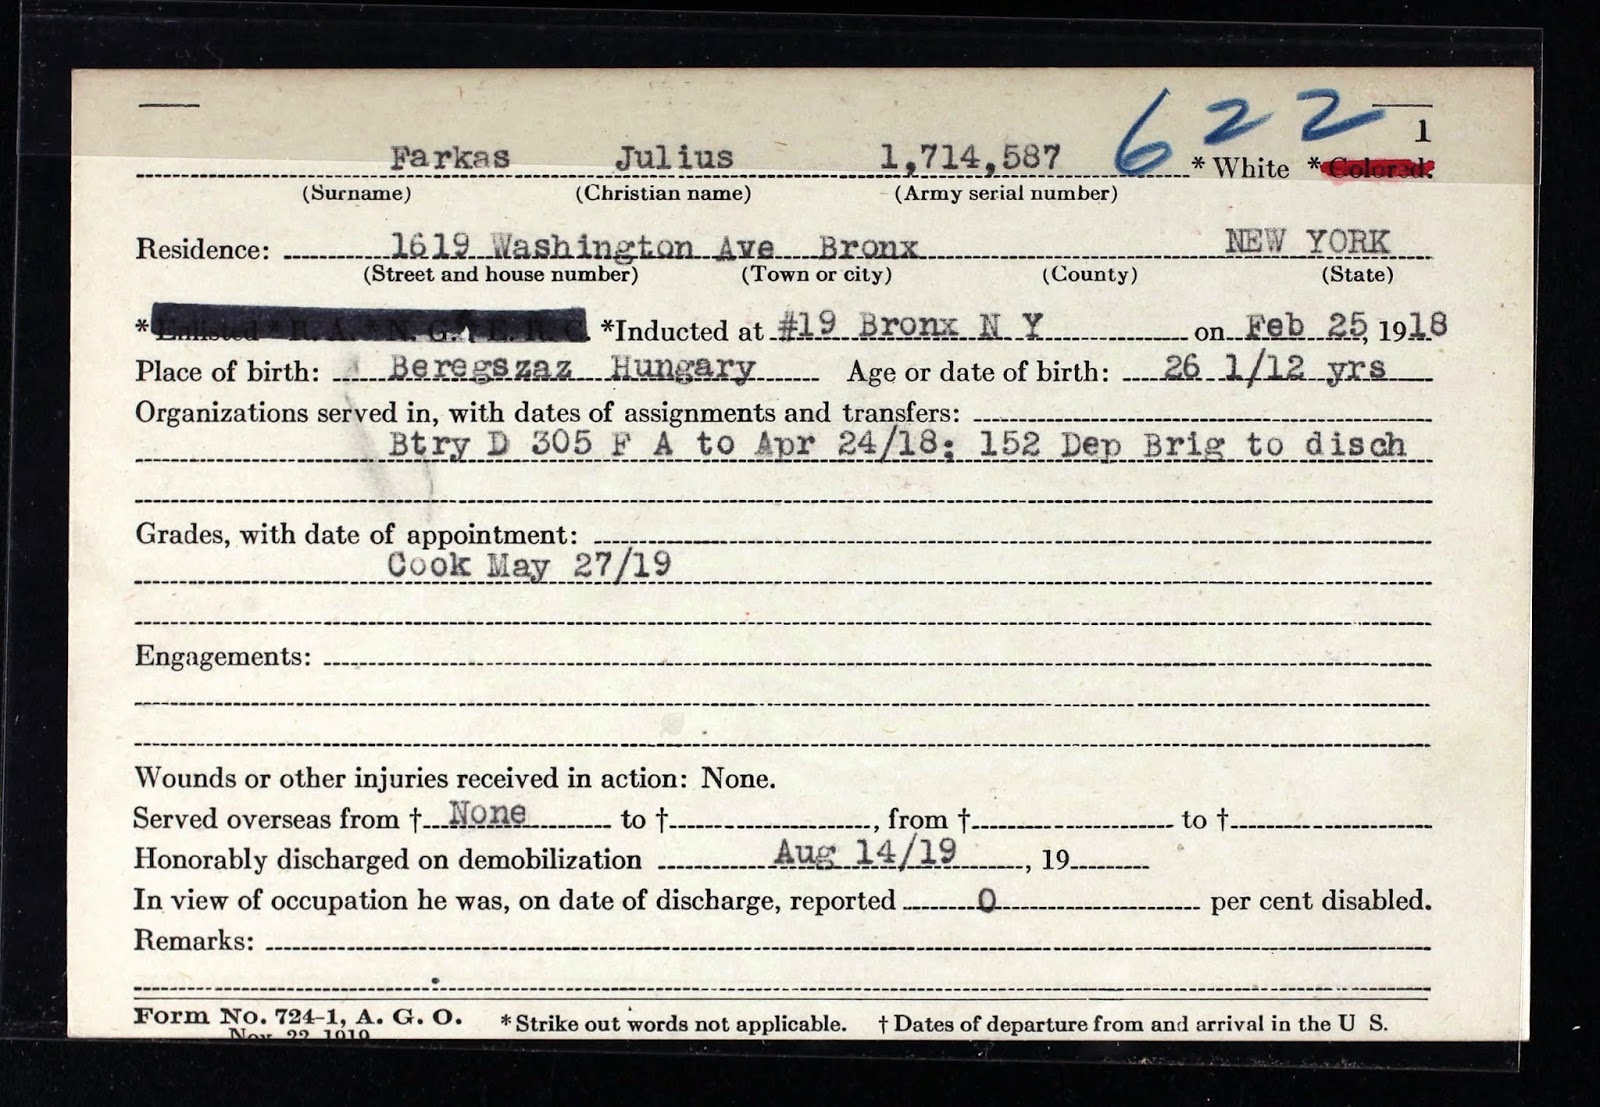 622
1
Farkas Julius 1,714,587 * White * Colored.
(Surname) (Christian name) (Army serial number)
Residence: 1619 Washington Ave Bronx NEW YORK
(Street and house number) (Town or city) (County) (State)
*Enlisted * R. A. * N. G. * E. R. C. *Inducted at #19 Bronx N Y on Feb 25, 1918
Place of birth: Beregszaz Hungary Age or date of birth: 26 1/12 yrs
Organizations served in, with dates of assignments and transfers:
Btry D 305 F A to Apr 24/18; 152 Dep Brig to disch
Grades, with date of appointment:
Cook May 27/19
Engagements:
Wounds or other injuries received in action: None.
Served overseas from † None to † , from † to †
Honorably discharged on demobilization Aug 14/19 , 19
In view of occupation he was, on date of discharge, reported 0 per cent disabled.
Remarks:
Form No. 724-1, A. G. O. *Strike out words not applicable. † Dates of departure from and arrival in the U S.
Nov. 22, 1919